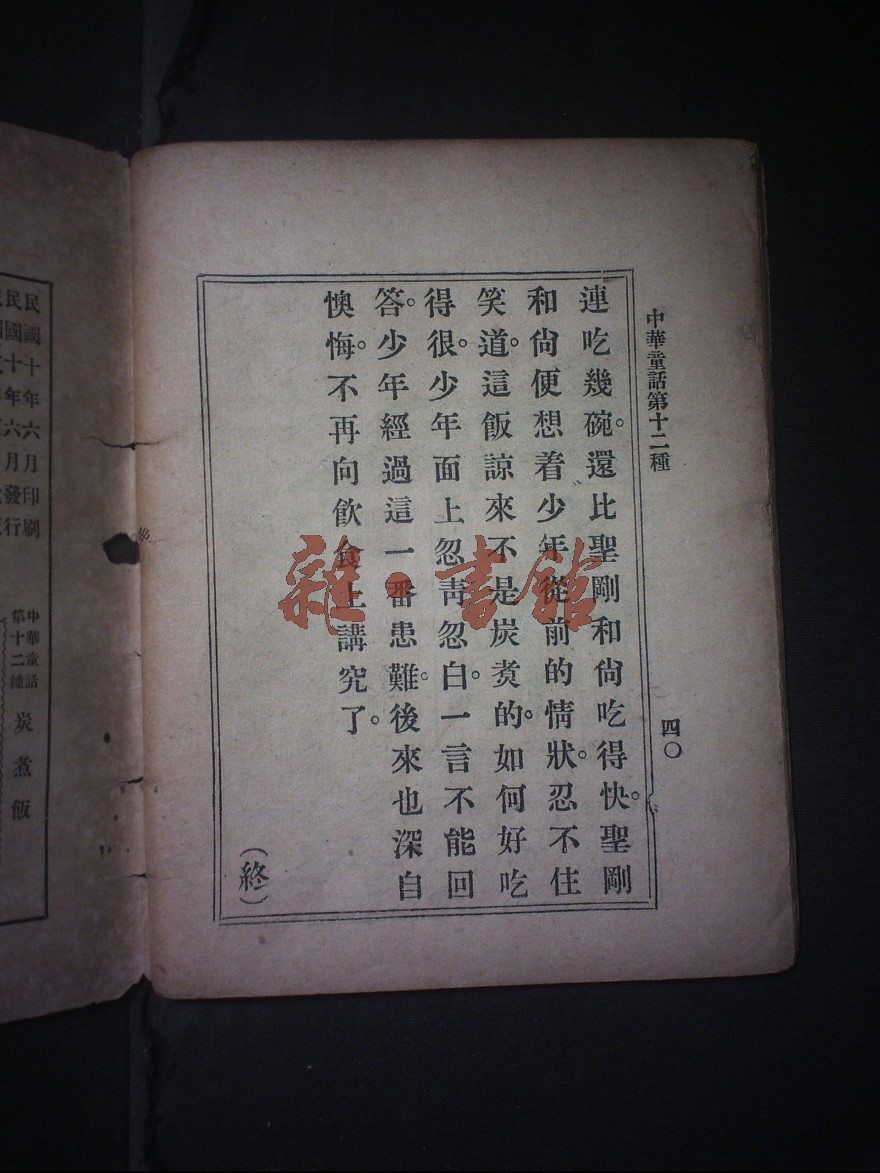 中華童話第十二種
四〇
連吃幾碗。還比聖剛和尙吃得快。聖剛
和尙便想着少年從前的情狀。忍不住
笑道。這飯諒來不是炭煑的。如何好吃
得很。少年面上忽靑忽白。一言不能回
答。少年經過這一番患難。後來也深自
懊悔。不再向飲食上講究了。
(終)
雜·書館
民國十年六月印刷
民國十年六月發行
中華童話
第十二種
炭煮飯